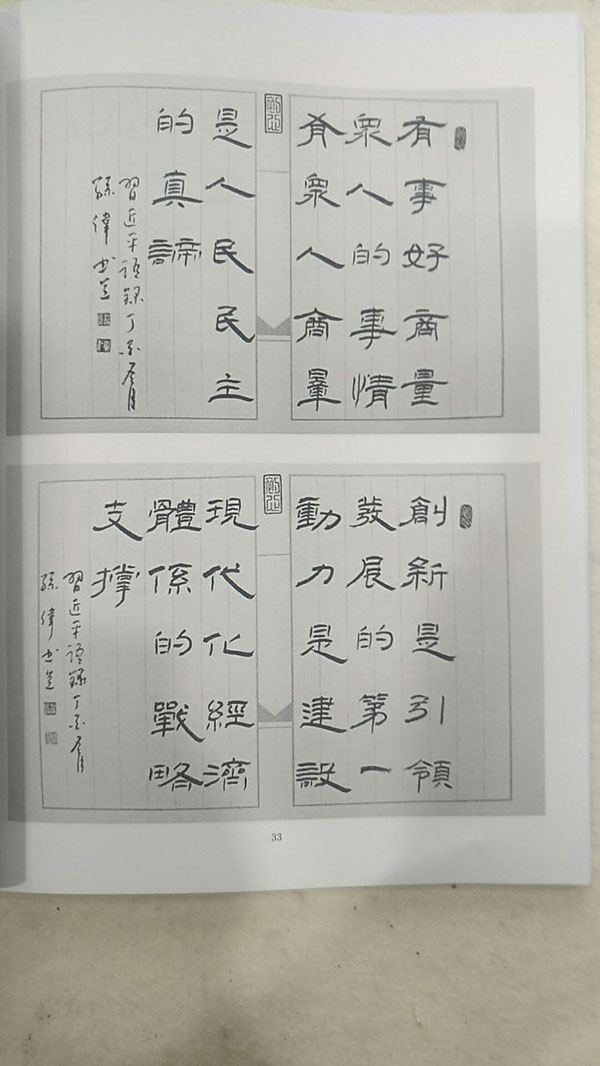 有事好商量
衆人的事情
衆人商量
是人民民主
的真諦
習近平語錄丁酉
孫偉書
創新是引領
發展的第一
動力是建設
現代化經濟
體係的戰略
支撐
習近平語錄丁酉
孫偉書
33